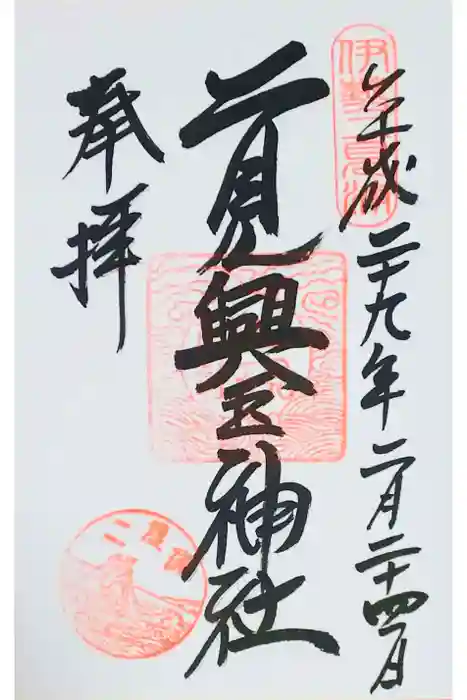 平成二十九年二月二十四日
伊勢二見浦
二見興玉神社
奉拝
二見浦